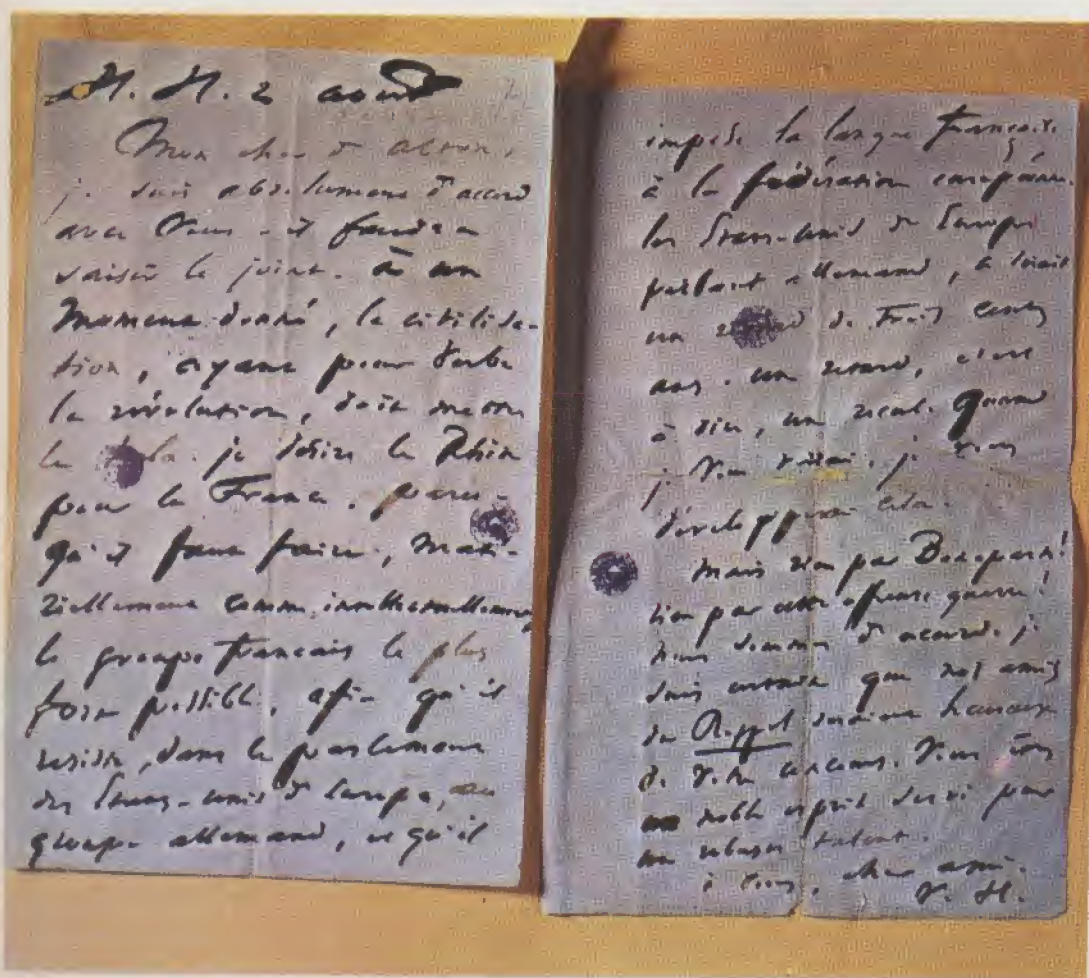 H. H. 2 août
Mon cher d'Alton,
je suis absolument d'accord
avec Vous. il faudra
saisir le joint. à un
Moment donné, la civilisa-
tion, ayant pour Verbe
la révolution, doit mettre
le holà. je désire le Rhin
pour la France, parce
qu'il faut faire, maté-
riellement comme intellectuellement,
le groupe français le plus
fort possible, afin qu'il
résiste, dans le parlement
des États-unis d'Europe, au
groupe allemand, et qu'il
impose la langue française
à la fédération européenne.
les États-unis de l'Europe
parlant allemand, ce serait
un retard de Trois cents
ans. un retard, c'est
à dire, un recul. Quand
je Vous verrai, je vous
développerai cela.
Mais rien par Bonaparte!
rien par cette affreuse guerre!
nous sommes d'accord. je
suis certain que nos amis
du Rappel seraient heureux
de Votre concours. Vous êtes
un noble esprit servi par
un robuste talent.
à vous, cher ami.
V. H.